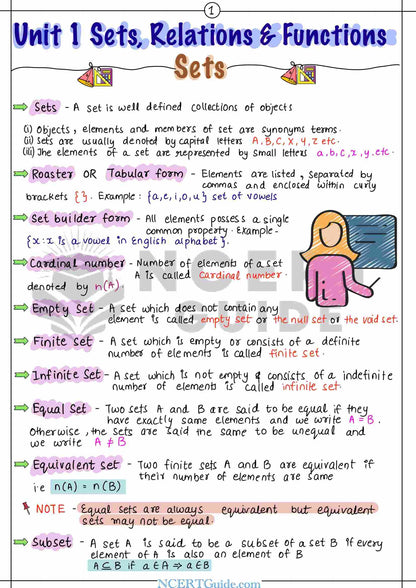 1
Unit 1 Sets, Relations & Functions
Sets
⇒ Sets - A set is well defined collections of objects
(i) Objects, elements and members of set are synonyms terms.
(ii) Sets are usually denoted by capital letters A, B, C, X, Y, Z etc.
(iii) The elements of a set are represented by small letters a, b, c, x, y, etc.
⇒ Roaster OR Tabular form - Elements are listed, separated by
commas and enclosed within curly
brackets { }. Example : {a, e, i, o, u} set of vowels
⇒ Set builder form - All elements possess a single
common property. Example -
{x : x is a vowel in English alphabet}.
⇒ Cardinal number - Number of elements of a set
A is called cardinal number.
denoted by n(A).
⇒ Empty Set - A set which does not contain any
element is called empty set or the null set or the void set.
⇒ Finite set - A set which is empty or consists of a definite
number of elements is called finite set.
⇒ Infinite Set - A set which is not empty & consists of a indefinite
number of elements is called infinite set.
⇒ Equal Set - Two sets A and B are said to be equal if they
have exactly same elements and we write A = B.
Otherwise, the sets are said the same to be unequal and
we write A ≠ B
⇒ Equivalent set - Two finite sets A and B are equivalent if
their number of elements are same
i.e n(A) = n(B)
NOTE - Equal sets are always equivalent but equivalent
sets may not be equal.
⇒ Subset - A set A is said to be a subset of a set B if every
element of A is also an element of B
A ⊆ B if a ∈ A ⇒ a ∈ B
NCERT
GUIDE
NCERTGuide.com